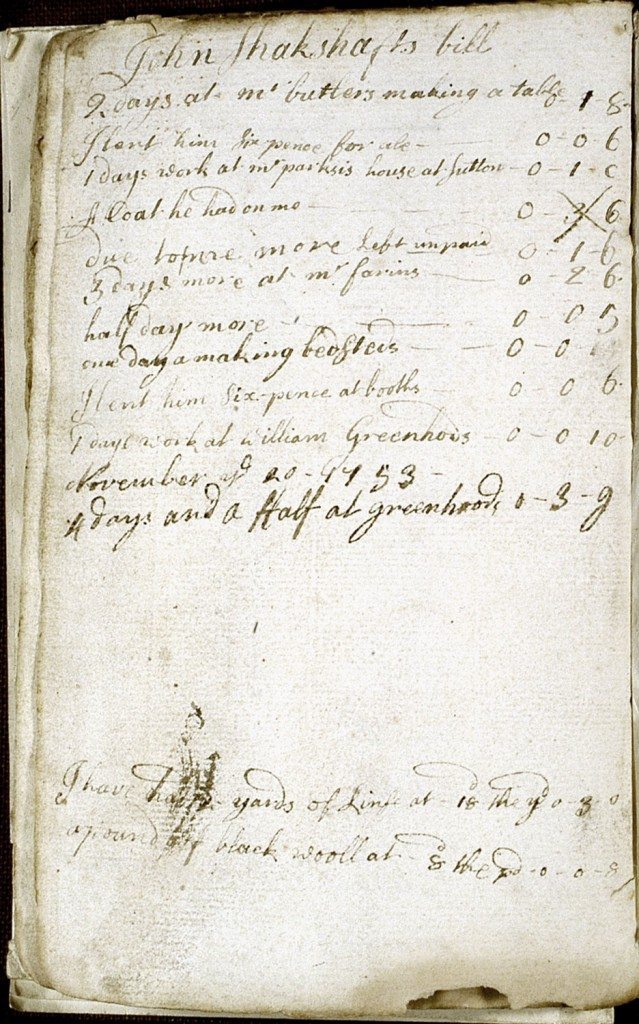 John Shakshafts bill
2 days at mr butters making a table 0 - 1 - 8
I lent him six pence for ale - 0 - 0 6
1 days work at mr parksis house at sutton - 0 - 1 - 0
A Coat he had on me - 0 - 2 6
due to me more left unpaid 0 - 1 - 6
3 days more at mr farins - 0 - 2 6
half day more - 0 - 0 5
one day a making bedsteds - 0 - 0
I lent him six-pence at booths - 0 - 0 6
1 days work at william Greenhous - 0 - 0 10
November ye 20 - 1753 -
4 days and a Half at greenhoods 0 - 3 - 9
I have had yards of at - 18 the yd 0 - 3 0
a pound of black wooll at 8 the pd - 0 - 0 - 8